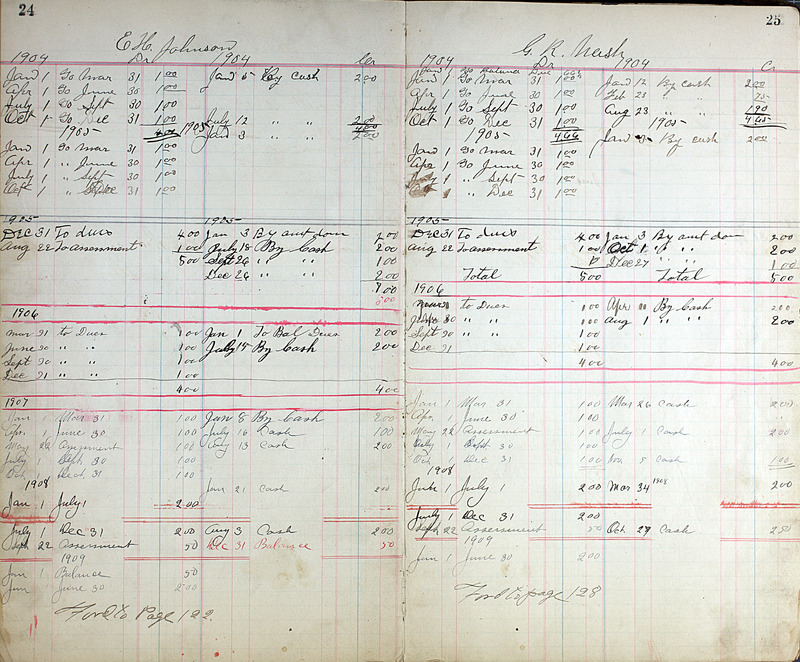 24
E. H. Johnson
1904 Dr 1904 Cr
Jan 1 To Mar 31 1 00 Jan 5 By cash 2 00
Apr 1 To June 30 1 00
July 1 To Sept 30 1 00
Oct 1 To Dec 31 1 00 July 12 " " 2 00
1905 4 00 1905 Jan 3 " " 4 00
2 00
Jan 1 To Mar 31 1 00
Apr 1 " June 30 1 00
July 1 " Sept 30 1 00
Oct 1 " Dec 31 1 00
1905 1905
Dec 31 To dues 4 00 Jan 3 By amt down 2 00
Aug 22 To assessment 1 00 July 18 By Cash 2 00
5 00 Sept 26 " " 1 00
Dec 26 " " 2 00
1906
Mar 31 to Dues 1 00 Jan 1 To Bal Dues 2 00
June 30 " " 1 00 July 15 By Cash 2 00
Sept 30 " " 1 00
Dec 31 " " 1 00
4 00 4 00
1907
Jan 1 Mar 31 1 00 Jan 8 By Cash 2 00
Apr. 1 June 30 1 00 July 16 Cash 1 00
May 22 Assessment 1 00 Aug 13 Cash 2 00
July 1 Sept. 30 1 00
Oct. 1 Dec. 31 1 00
1908
Jan 21 Cash 2 00
Jan 1 July 1 2 00
July 1 Dec 31 2 00 Aug 3 Cash 2 00
Sept 22 Assessment 50 Dec 31 Balance 50
1909
Jan 1 Balance 50
Jan June 30 2 00
Ford to Page 122.
25
G. R. Nash
1904 Dr 1904 Cr
Jan 1 To Balance Due 66
Jan 1 To Mar 31 1 00 Jan 12 By cash 2 00
Apr 1 To June 30 1 00 Feb 23 " " 75
July 1 To Sept 30 1 00 Aug 23 " " 1 90
Oct 1 To Dec 31 1 00 4 65
1905 4 66 1905
Jan 1 To Mar 31 1 00 Jan 3 By cash 2 00
Apr 1 To June 30 1 00
July 1 " Sept 30 1 00
" Dec 31 1 00
1905
Dec 31 To dues 4 00 Jan 3 By amt down 2 00
Aug 22 To assessment 1 00 Oct 1 " " 2 00
Dec 27 1 00
Total 5 00 Total 5 00
1906
Mar 31 to Dues 1 00 Apr 11 By Cash 2 00
June 30 " " 1 00 Aug 1 " " 2 00
Sept 30 " " 1 00
Dec 31 1 00
4 00 4 00
Jan 1 Mar 31 1 00 Mar 26 Cash 2 00
Apr. June 30 1 00
May 22 Assessment 1 00 July 1 Cash 2 00
July 1 Sept. 30 1 00
Oct 1 Dec 31 1 00 Nov 5 Cash 1 00
1908
Jan 1 July 1 2 00 Mar 34 1908 2 00
July 1 Dec 31 2 00
Sept 22 Assessment 50 Oct 29 Cash 2 50
1909
Jan 1 June 30 2 00
Ford to page 128